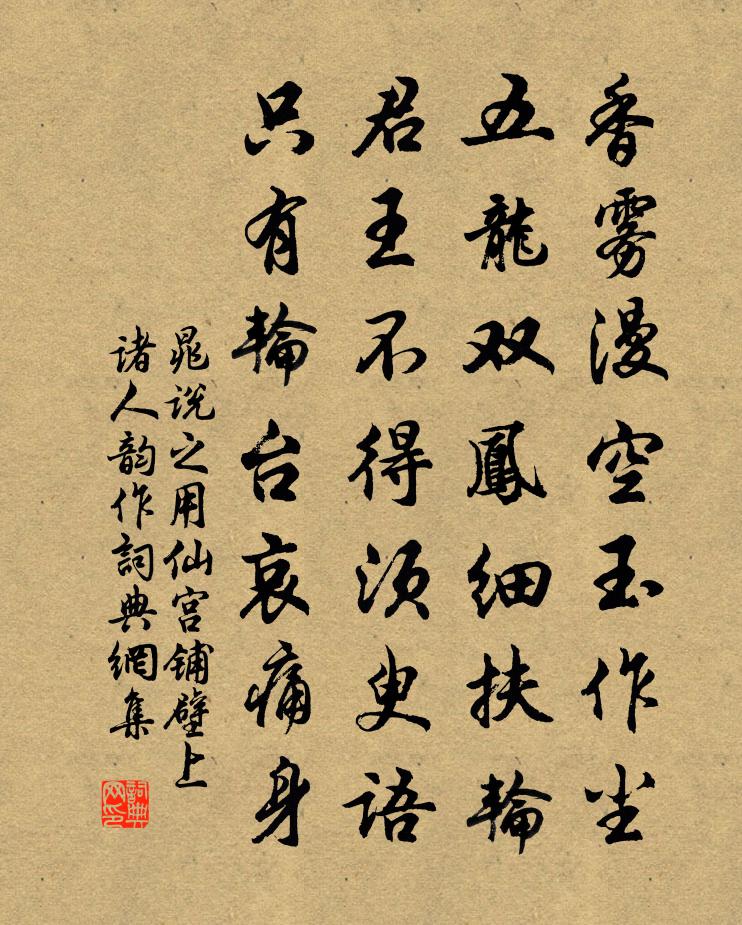 香雾漫空玉作尘
五龍双鳳细扶輪
君王不得须臾語
只有輪台哀痛身
晁说之用仙宫铺壁上
诸人韵作詞典網集
詞典网印